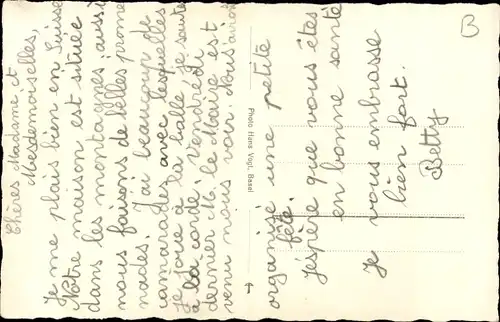 Chères Madame et
Mesdemoiselles,
Je me plais bien en Suisse
Notre maison est située
dans les montagnes, aussi
nous faisons de belles prome
nades. J'ai beaucoup de
camarades avec lesquelles
je joue à la balle je saute
à la corde. Vendredi
dernier M. le Maire est
venu nous voir. Nous avions
organisé une petite
fête.
J'espère que vous êtes
en bonne santé
Je vous embrasse
bien fort.
Betty
Photo Hans Vogt, Basel
B